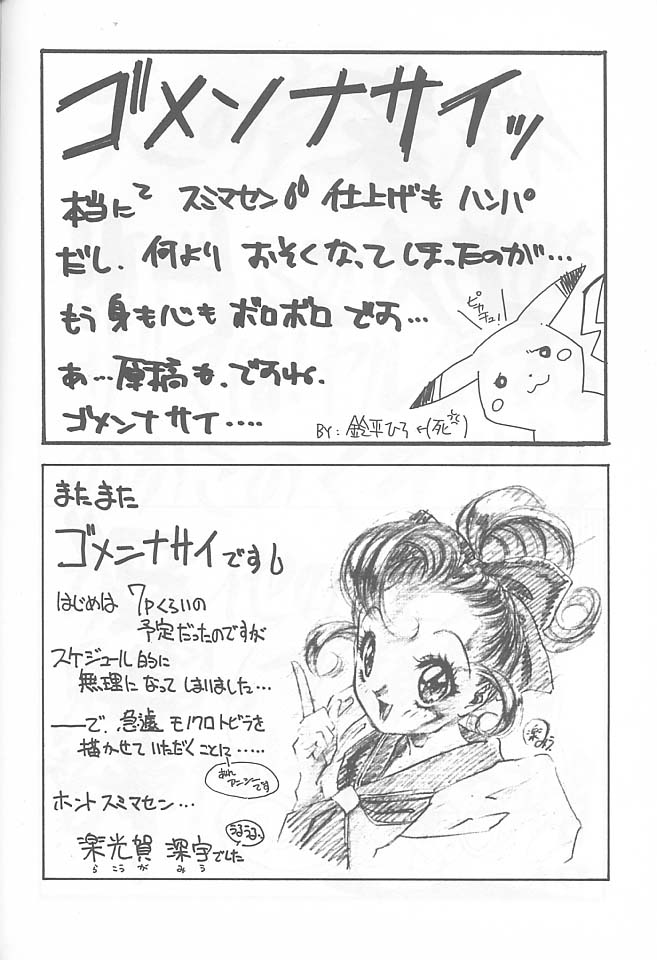 ゴメンナサイッ
本当にて スミマセン 仕上げも ハンパ
だし、何より おそくなってしまったのが…
もう 身も心も ボロボロ です…
あ…原稿も、ですね、
ゴメンナサイ‥‥
ピカチュ!
BY: 鈴平ひろ ←(死)
またまた
ゴメンナサイです
はじめは 7Pくらいの
予定だったのですが
スケジュール的に
無理になってしまいました…
――で、急遽 モノクロトビラを
描かせていただくことに……
アニシーです
ホントスミマセン…
楽光賀 深宇でした
らこうが みう
うるうる、
楽みう